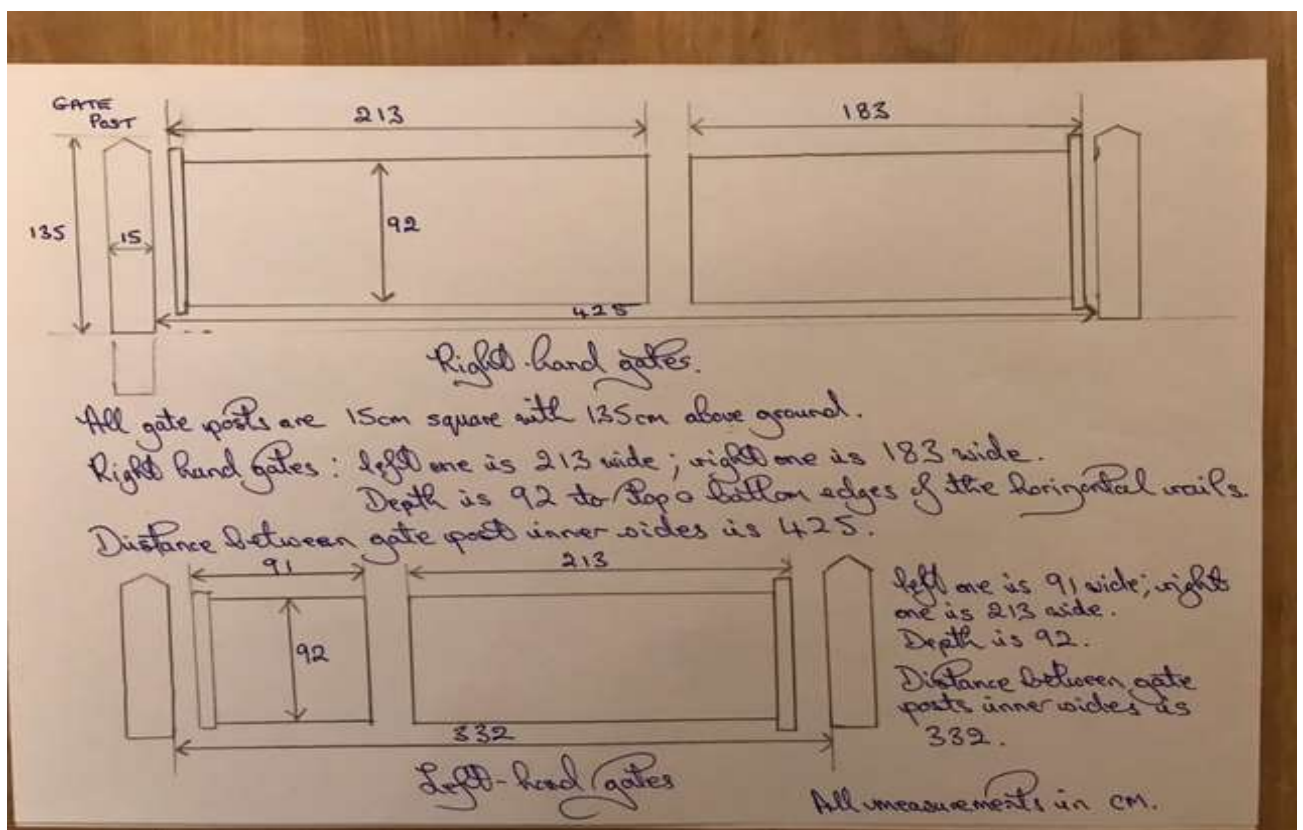 GATE
POST
213
183
135
15
92
425
Right-hand gates.
All gate posts are 15cm square with 135cm above ground.
Right hand gates: left one is 213 wide; right one is 183 wide.
Depth is 92 to top & bottom edges of the horizontal rails.
Distance between gate post inner sides is 425.
91
213
92
332
Left-hand gates
left one is 91 wide; right
one is 213 wide.
Depth is 92.
Distance between gate
posts inner sides is
332.
All measurements in cm.